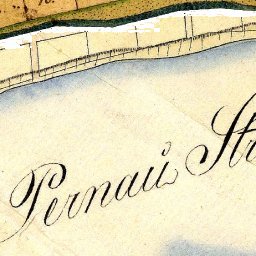 Pernaŭ Str